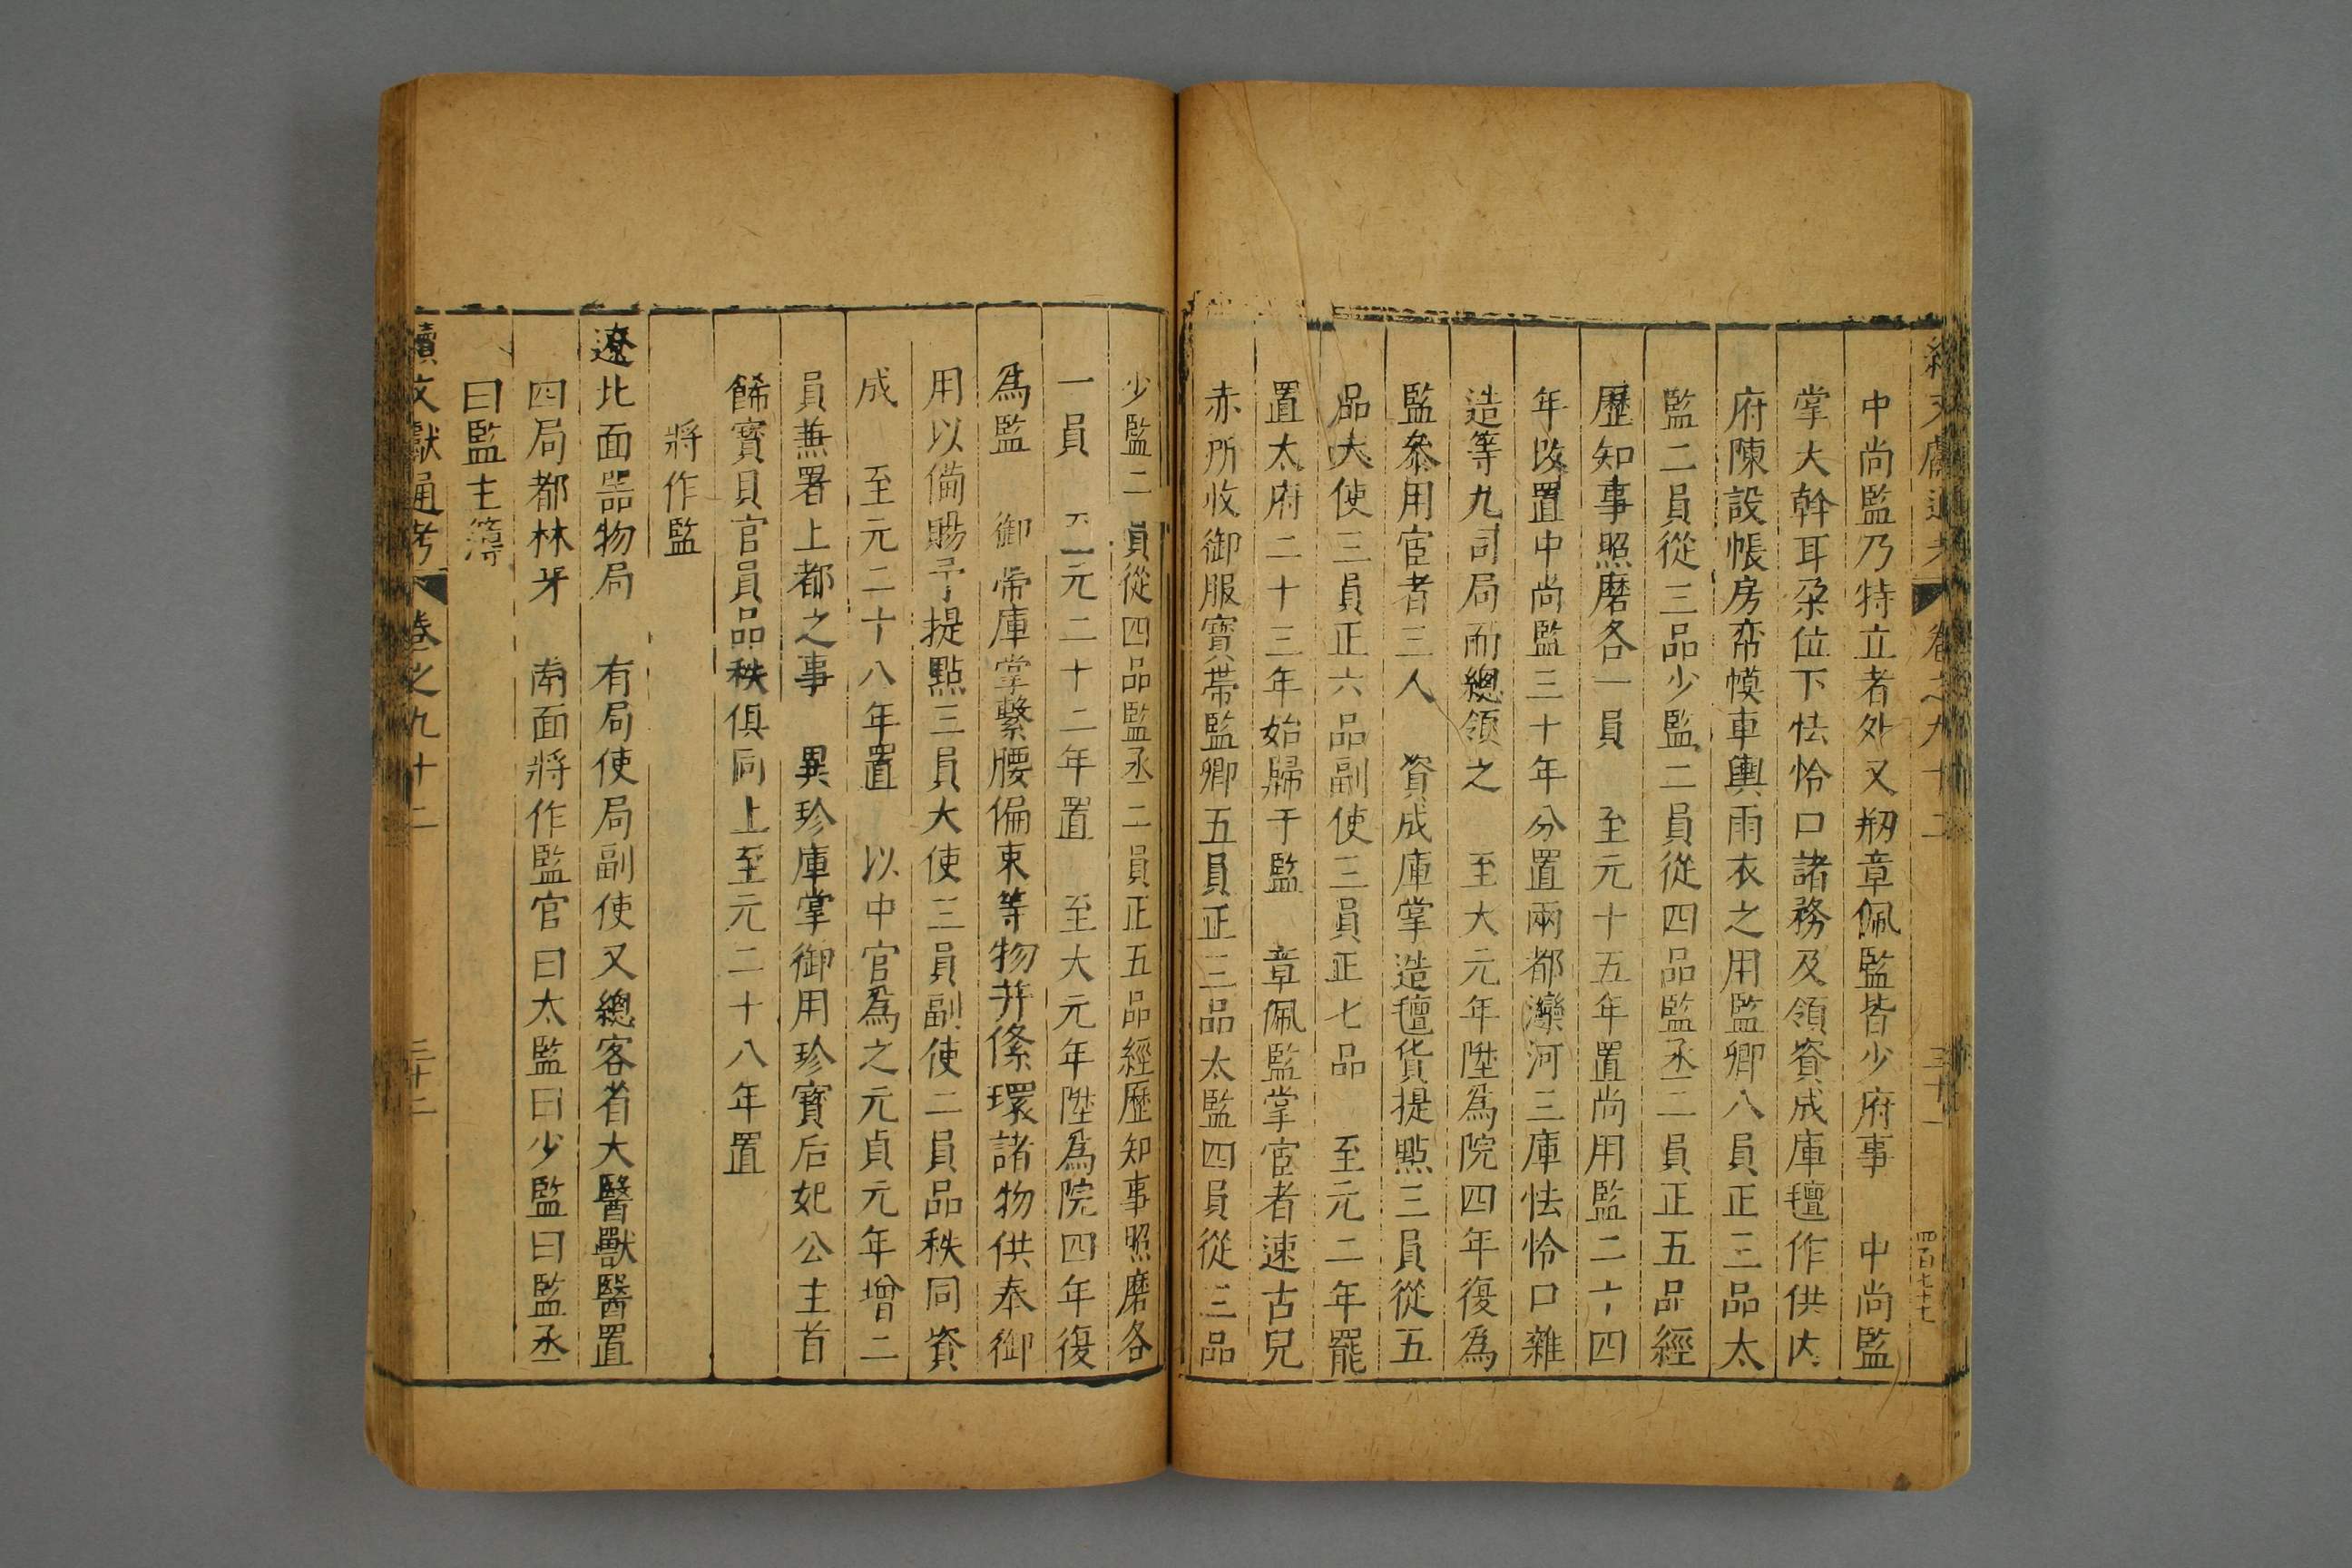 續文獻通考 卷之九十二 三十一 四百七十七
中尚監乃特立者外又剏章佩監皆少府事 中尚監
掌大斡耳朶位下怯怜口諸務及領資成庫氊作供内
府陳設帳房帟幙車輿雨衣之用監卿八員正三品太
監二員從三品少監二員從四品監丞二員正五品經
歷知事照磨各一員 至元十五年置尚用監二十四
年改置中尚監三十年分置兩都灤河三庫怯怜口雜
造等九司局而總領之 至大元年陞爲院四年復爲
監叅用宦者三人 資成庫掌造氊貨提點三員從五
品大使三員正六品副使三員正七品 至元二年罷
置太府二十三年始歸于監 章佩監掌宦者速古兒
赤所收御服寳帶監卿五員正三品太監四員從三品
少監二員從四品監丞二員正五品經歷知事照磨各
一員 至元二十二年置 至大元年陞爲院四年復
爲監 御帶庫掌繫腰偏束等物并絛環諸物供奉御
用以備賜予提點三員大使三員副使二員品秩同資
成 至元二十八年置 以中官爲之元貞元年增二
員兼署上都之事 異珍庫掌御用珍寳后妃公主首
餙寳貝官員品秩俱同上至元二十八年置
將作監
遼北面噐物局 有局使局副使又總客省大醫獸醫置
四局都林牙 南面將作監官曰太監曰少監曰監丞
曰監主簿
續文獻通考 卷之九十二 三十二